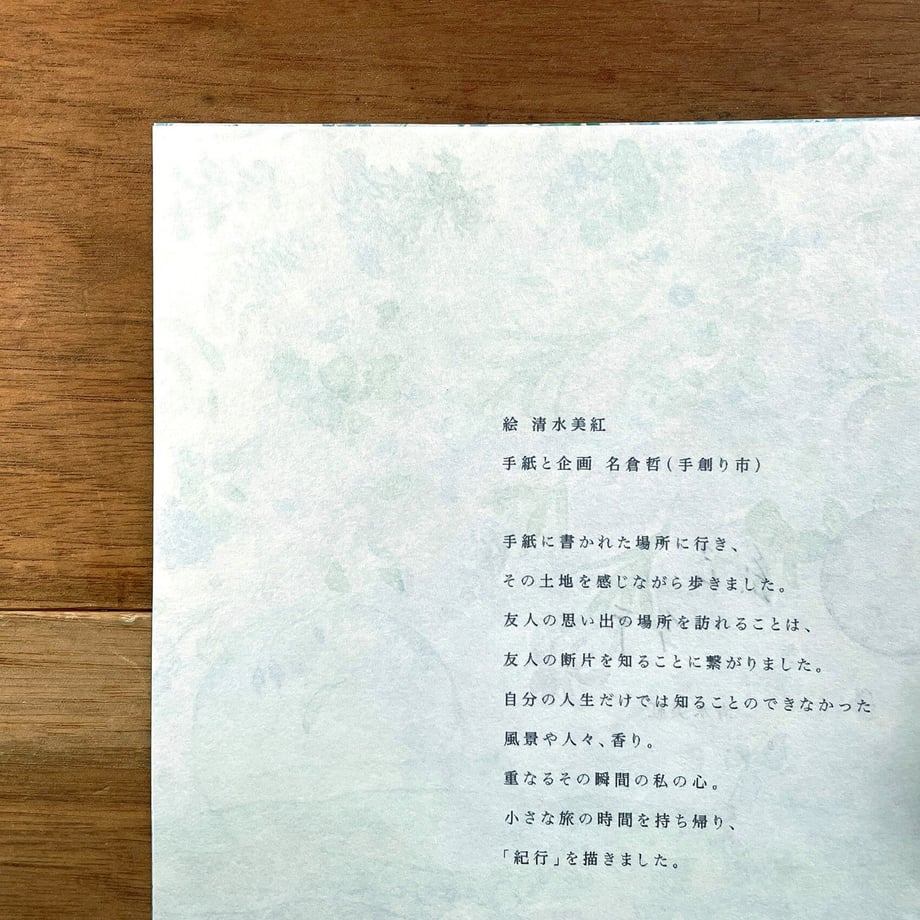 絵 清水美紅
手紙と企画 名倉哲(手創り市)
手紙に書かれた場所に行き、
その土地を感じながら歩きました。
友人の思い出の場所を訪れることは、
友人の断片を知ることに繋がりました。
自分の人生だけでは知ることのできなかった
風景や人々、香り。
重なるその瞬間の私の心。
小さな旅の時間を持ち帰り、
「紀行」を描きました。